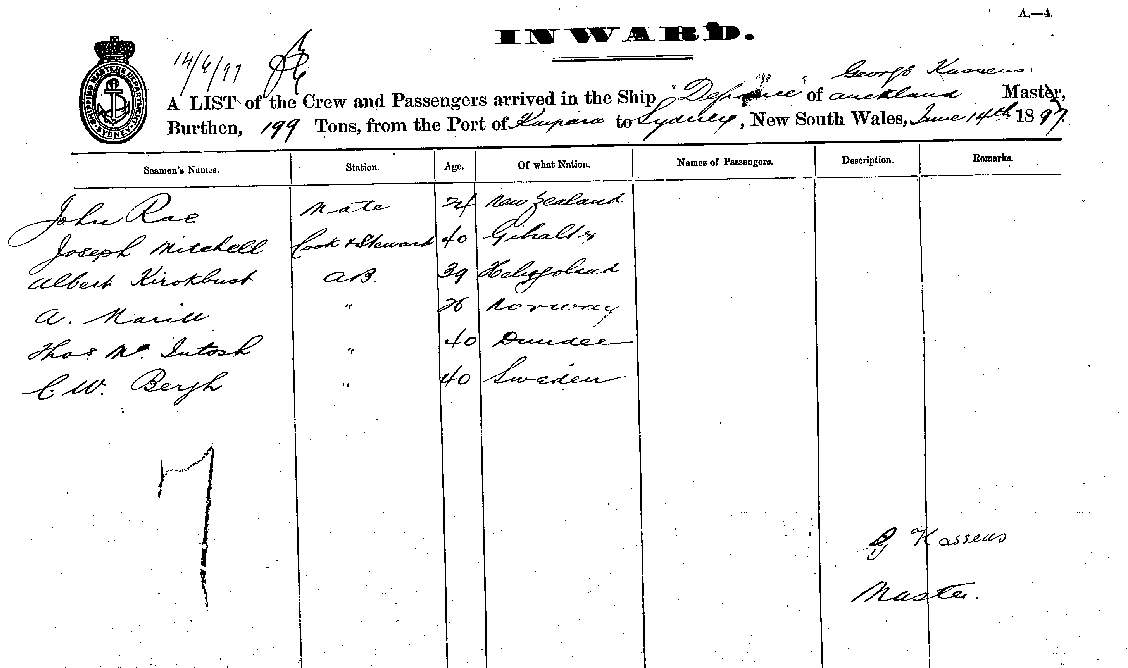 A.—4.
INWARD.
14/6/97
George Kassens
A LIST of the Crew and Passengers arrived in the Ship "Defiance" of Auckland Master,
Burthen, 199 Tons, from the Port of Kaipara to Sydney, New South Wales, June 14th 1897
Seamen's Names. Station. Age. Of what Nation. Names of Passengers. Description. Remarks.
John Rae Mate 24 New Zealand
Joseph Mitchell Cook & Steward 40 Gibalter
Albert Kirokbush AB. 39 Heligoland
A. " Norway
Thos Mc Intosh " 40 Dundee
C W. Bergh " 40 Sweden
7
G Kassens
Master.